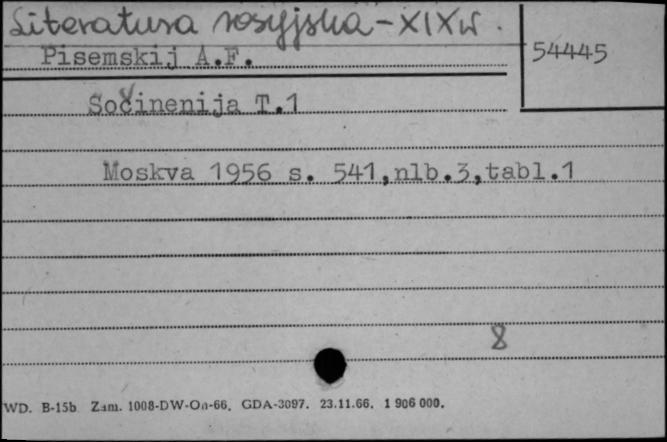 Literatura rosyjska - XIX w.
54445
Pisemskij A.F.
Sočinenija T.1
Moskva 1956 s. 541,nlb.3,tabl.1
8
WD. B-15b Zam. 1008-DW-On-66. GDA-3097. 23.11.66. 1 906 000.